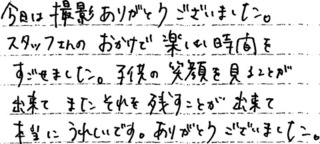 今日は撮影ありがとうございました。
スタッフさんの おかげで 楽しい時間を
すごせました。子供の 笑顔を見ることが
出来て またそれを 残すことが 出来て
本当に うれしいです。ありがとう ございました。